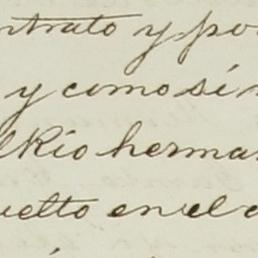 ntrato y po
y como si
el Rio herma
uelto en el